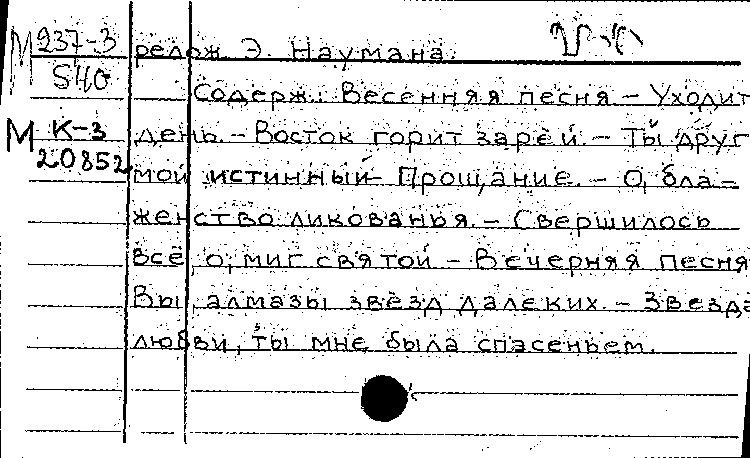 М 237-3
540
М К-3
20852
релож Э. Наумана.
Содерж.: Весенняя песня – Уходит
день. – Восток горит зарёй. – Ты друг
мой истинный – Прощание. – О, бла-
женство ликованья. – Свершилось
всё, о, миг святой – Вечерняя песня
Вы, алмазы звёзд далеких. – Звезда
любви, ты мне была спасеньем.